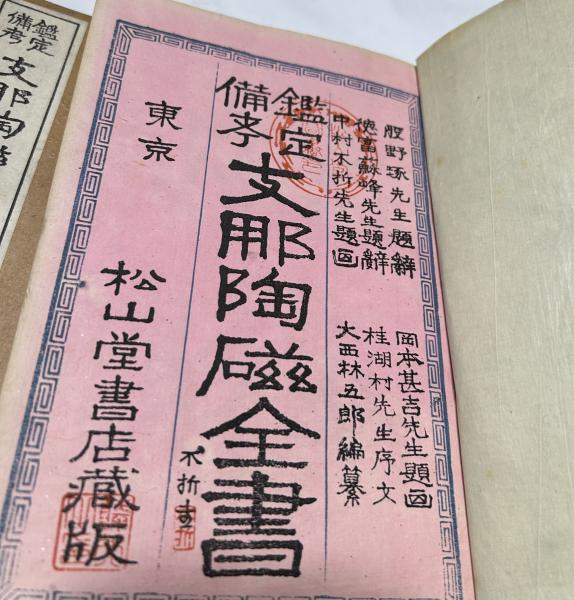 股野琢先生題辭
徳富蘇峰先生題辭
中村不折先生題画
岡本甚吉先生題画
桂湖村先生序文
大西林五郎編纂
鑑定
備考
支那陶磁全書
不折書
東京
松山堂書店藏版
鑑定
備考
支那陶